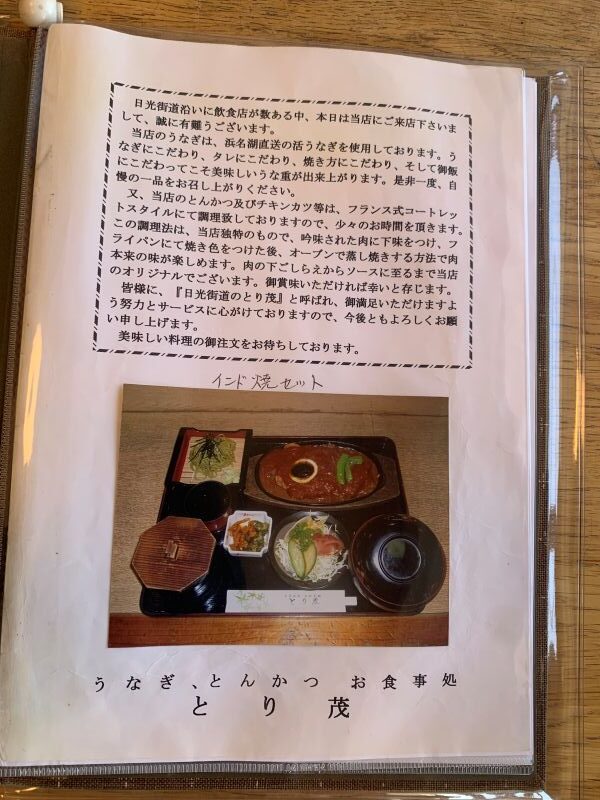 日光街道沿いに飲食店が数ある中、本日は当店にご来店下さいま
して、誠に有難うございます。
当店のうなぎは、浜名湖直送の活うなぎを使用しております。う
なぎにこだわり、タレにこだわり、焼き方にこだわり、そして御飯
にこだわってこそ美味しいうな重が出来上がります。是非一度、自
慢の一品をお召し上がりください。
又、当店のとんかつ及びチキンカツ等は、フランス式コートレッ
トスタイルにて調理致しておりますので、少々のお時間を頂きます。
この調理法は、当店独特のもので、吟味された肉に下味をつけ、フ
ライパンにて焼き色をつけた後、オーブンで蒸し焼する方法で肉
本来の味が楽しめます。肉の下ごしらえからソースに至るまで当店
のオリジナルでございます。御賞味いただければ幸いと存じます。
皆様に、『日光街道のとり茂』と呼ばれ、御満足いただけますよ
う努力とサービスに心がけておりますので、今後ともよろしくお願
い申し上げます。
美味しい料理の御注文をお待ちしております。
インド焼セット
とり茂
うなぎ、とんかつ お食事処
とり茂